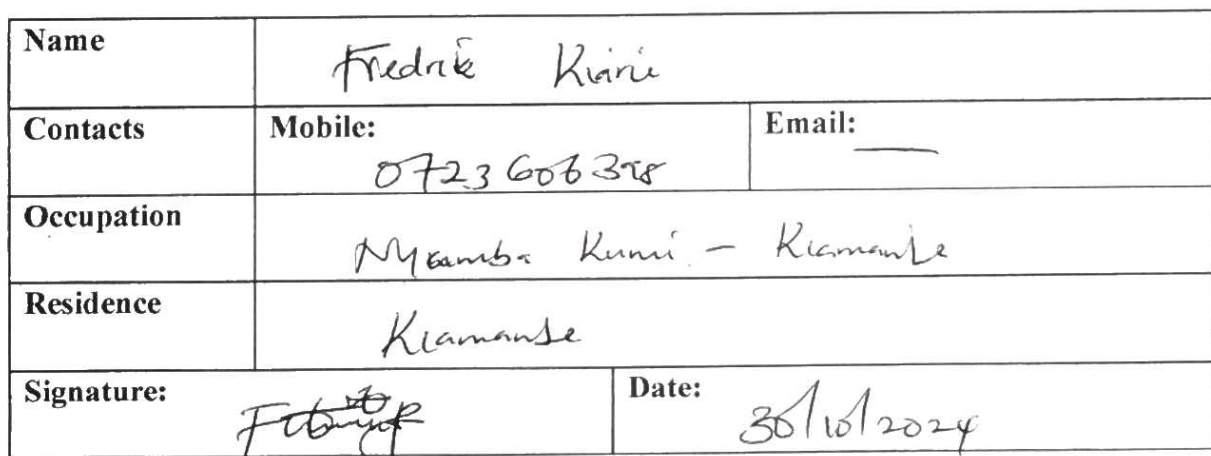 Name Fredrik Kiarie
Contacts Mobile: Email: —
0723 606 398
Occupation
Nyumba Kumi - Kiamante
Residence
Kiamante
Signature: Date: 30/10/2024